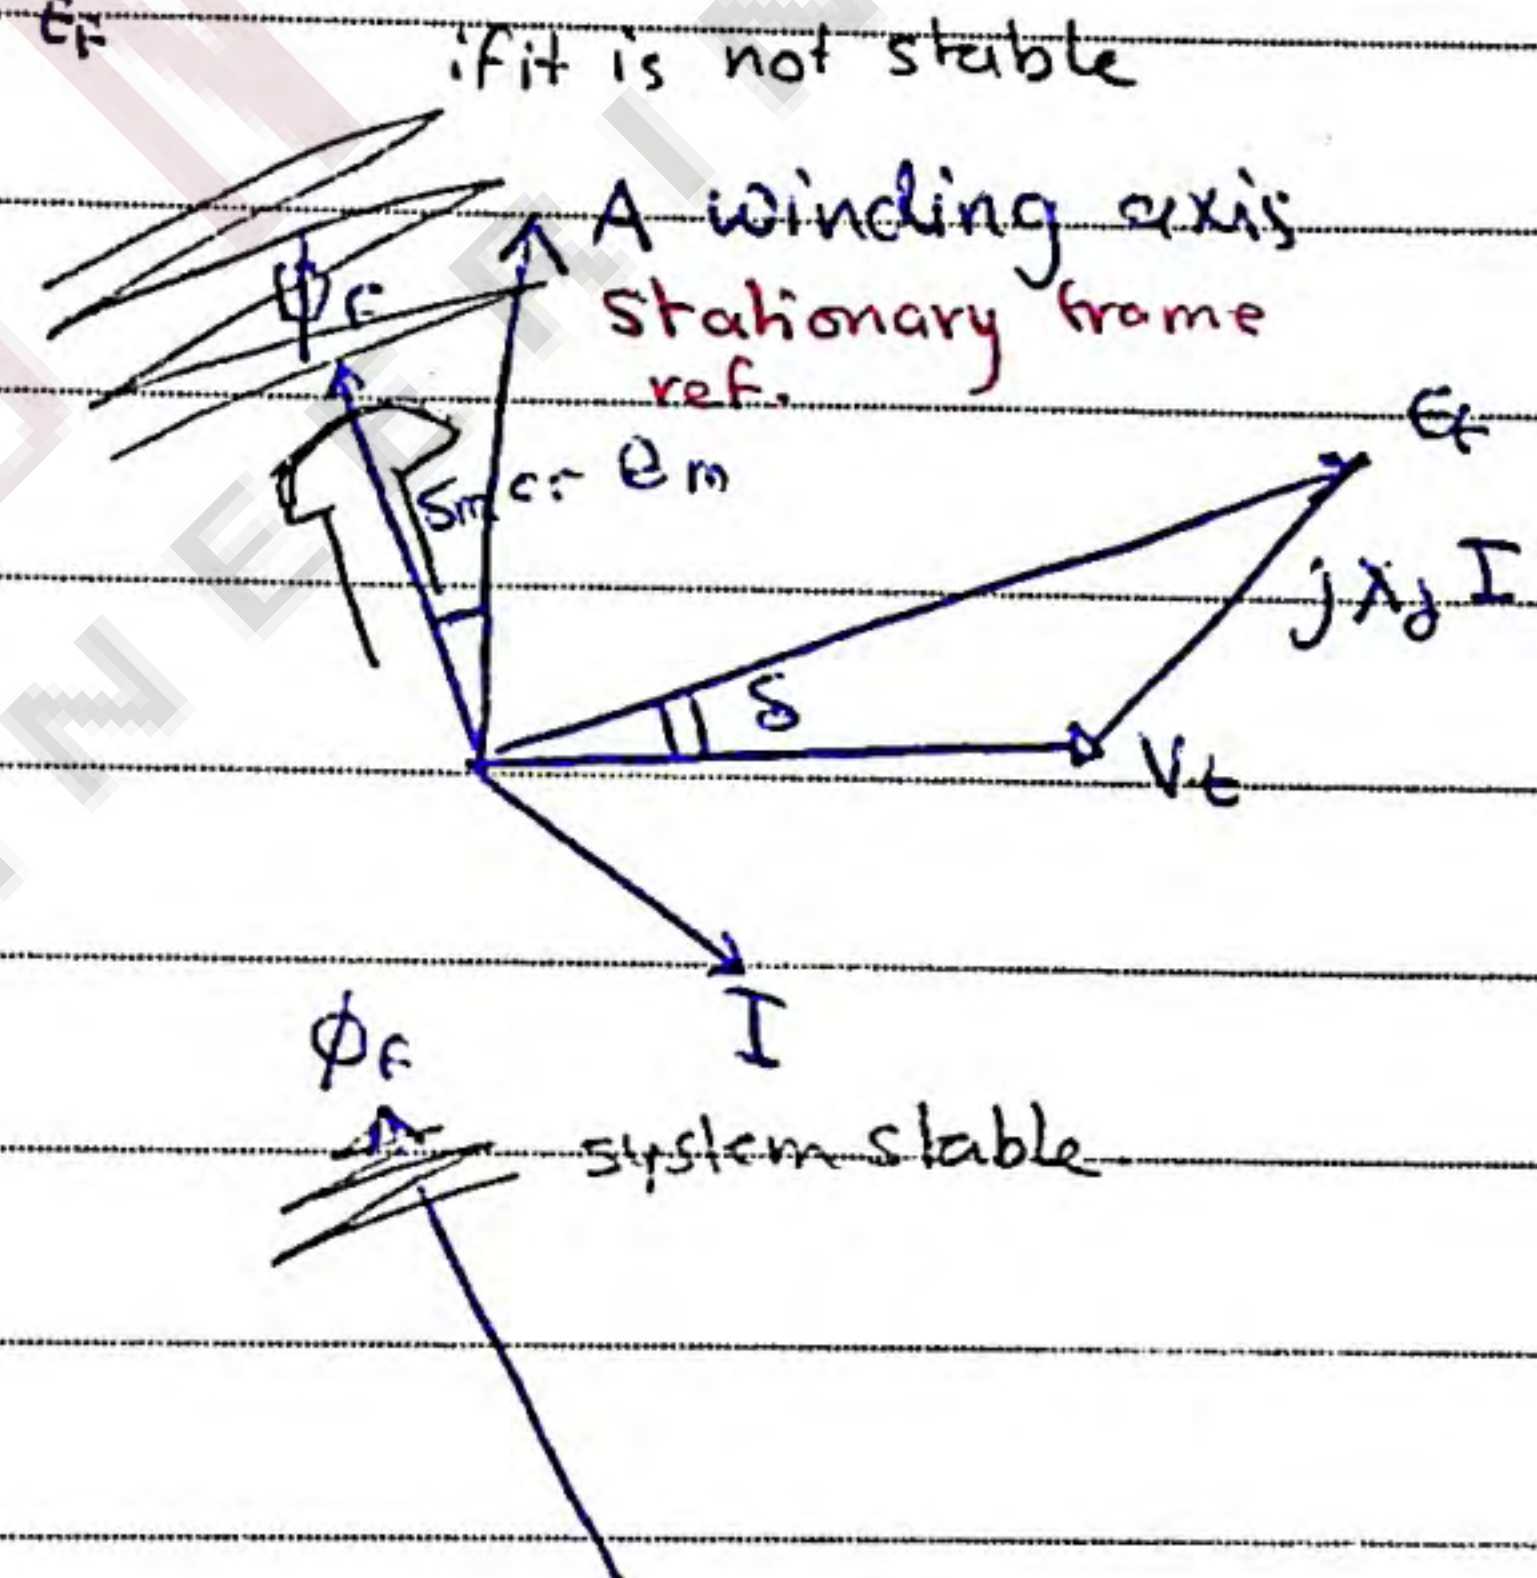 E_F
if it is not stable
A winding axis
Stationary frame
ref.
ϕ_F
δm or θm
E_f
jX_d I
δ
V_t
I
ϕ_F
system stable